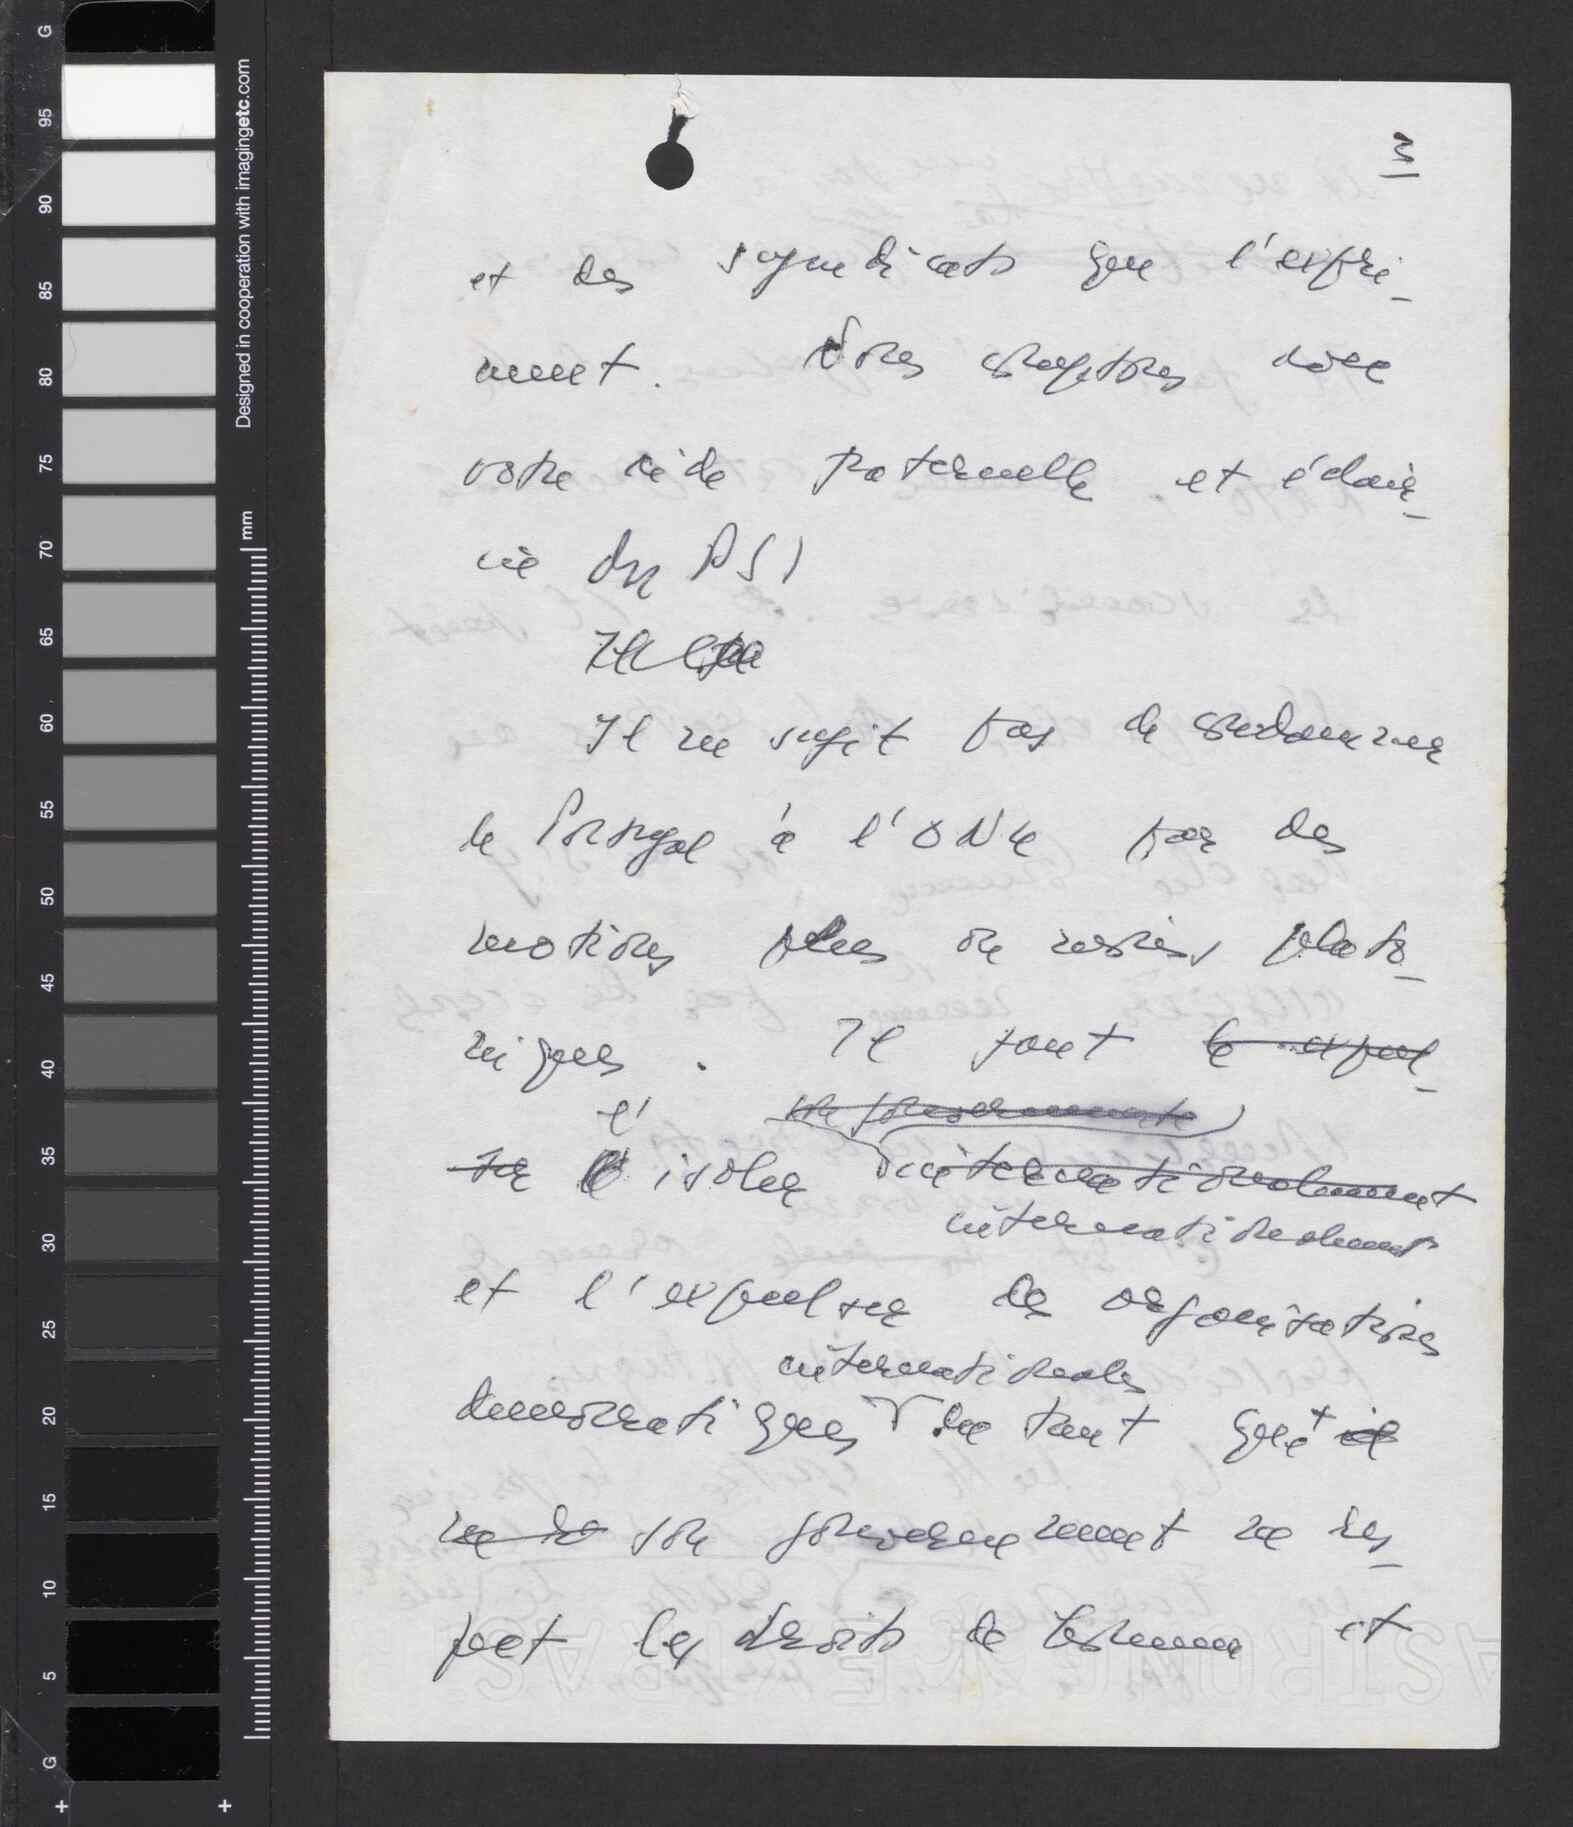 3
et des syndicats que l'expri-
ment. Nous comptons sur
votre aide fraternelle et éclai-
rée du PSI
Il
Il ne s'agit pas de condamner
le Portugal à l'ONU par des
motions plus ou moins plato-
niques. Il faut le expul-
l'
ser l'isoler internationalement
internationalement
et l'expulser des organisations
internationales
démocratiques tant que il
ne son gouvernement ne res-
pect les droits de l'homme et
G
95
90
85
80
75
70
65
60
55
50
45
40
35
30
25
20
15
10
5
G
Designed in cooperation with imagingetc.com
mm